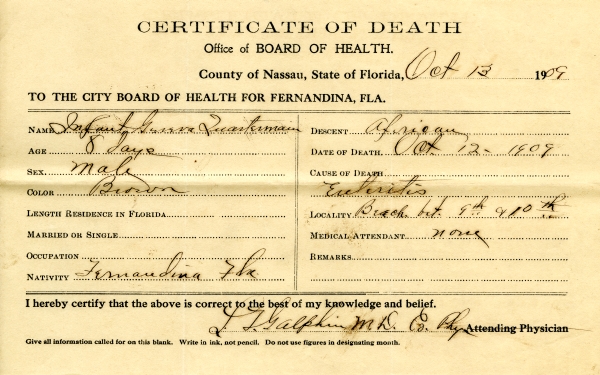 CERTIFICATE OF DEATH
Office of BOARD OF HEALTH.
County of Nassau, State of Florida, Oct 13 1909
TO THE CITY BOARD OF HEALTH FOR FERNANDINA, FLA.
NAME Infant Quarterman
AGE 8 days
SEX. Male
COLOR Brown
LENGTH RESIDENCE IN FLORIDA
MARRIED OR SINGLE
OCCUPATION
NATIVITY Fernandina Fla
DESCENT African
DATE OF DEATH. Oct 12 - 1909
CAUSE OF DEATH
Enteritis
LOCALITY Beach bet. 9th & 10th
MEDICAL ATTENDANT none
REMARKS
I hereby certify that the above is correct to the best of my knowledge and belief.
Galphin M.D. Co. Phy Attending Physician
Give all information called for on this blank. Write in ink, not pencil. Do not use figures in designating month.